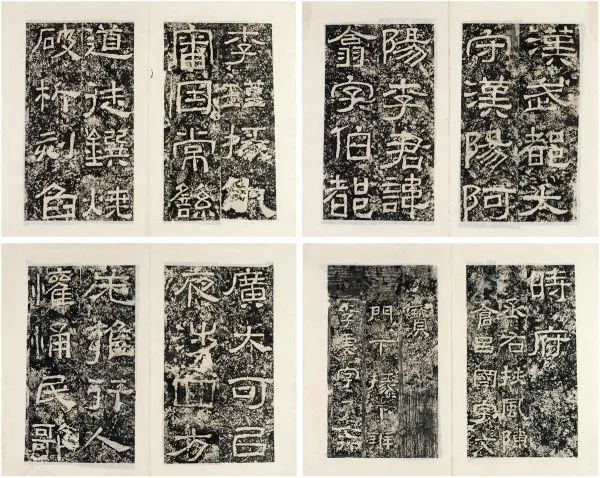 漢武都大
守漢陽阿
陽李君諱
翕字伯都
李瑾掾仇
審因常繇
道徒鐉燒
破析刻臽
時府
丞右扶風陳
倉呂國字文
寶
門下掾下辨
李虔字子
廣大可以
夜涉四方
无雍行人
懽悀民歌